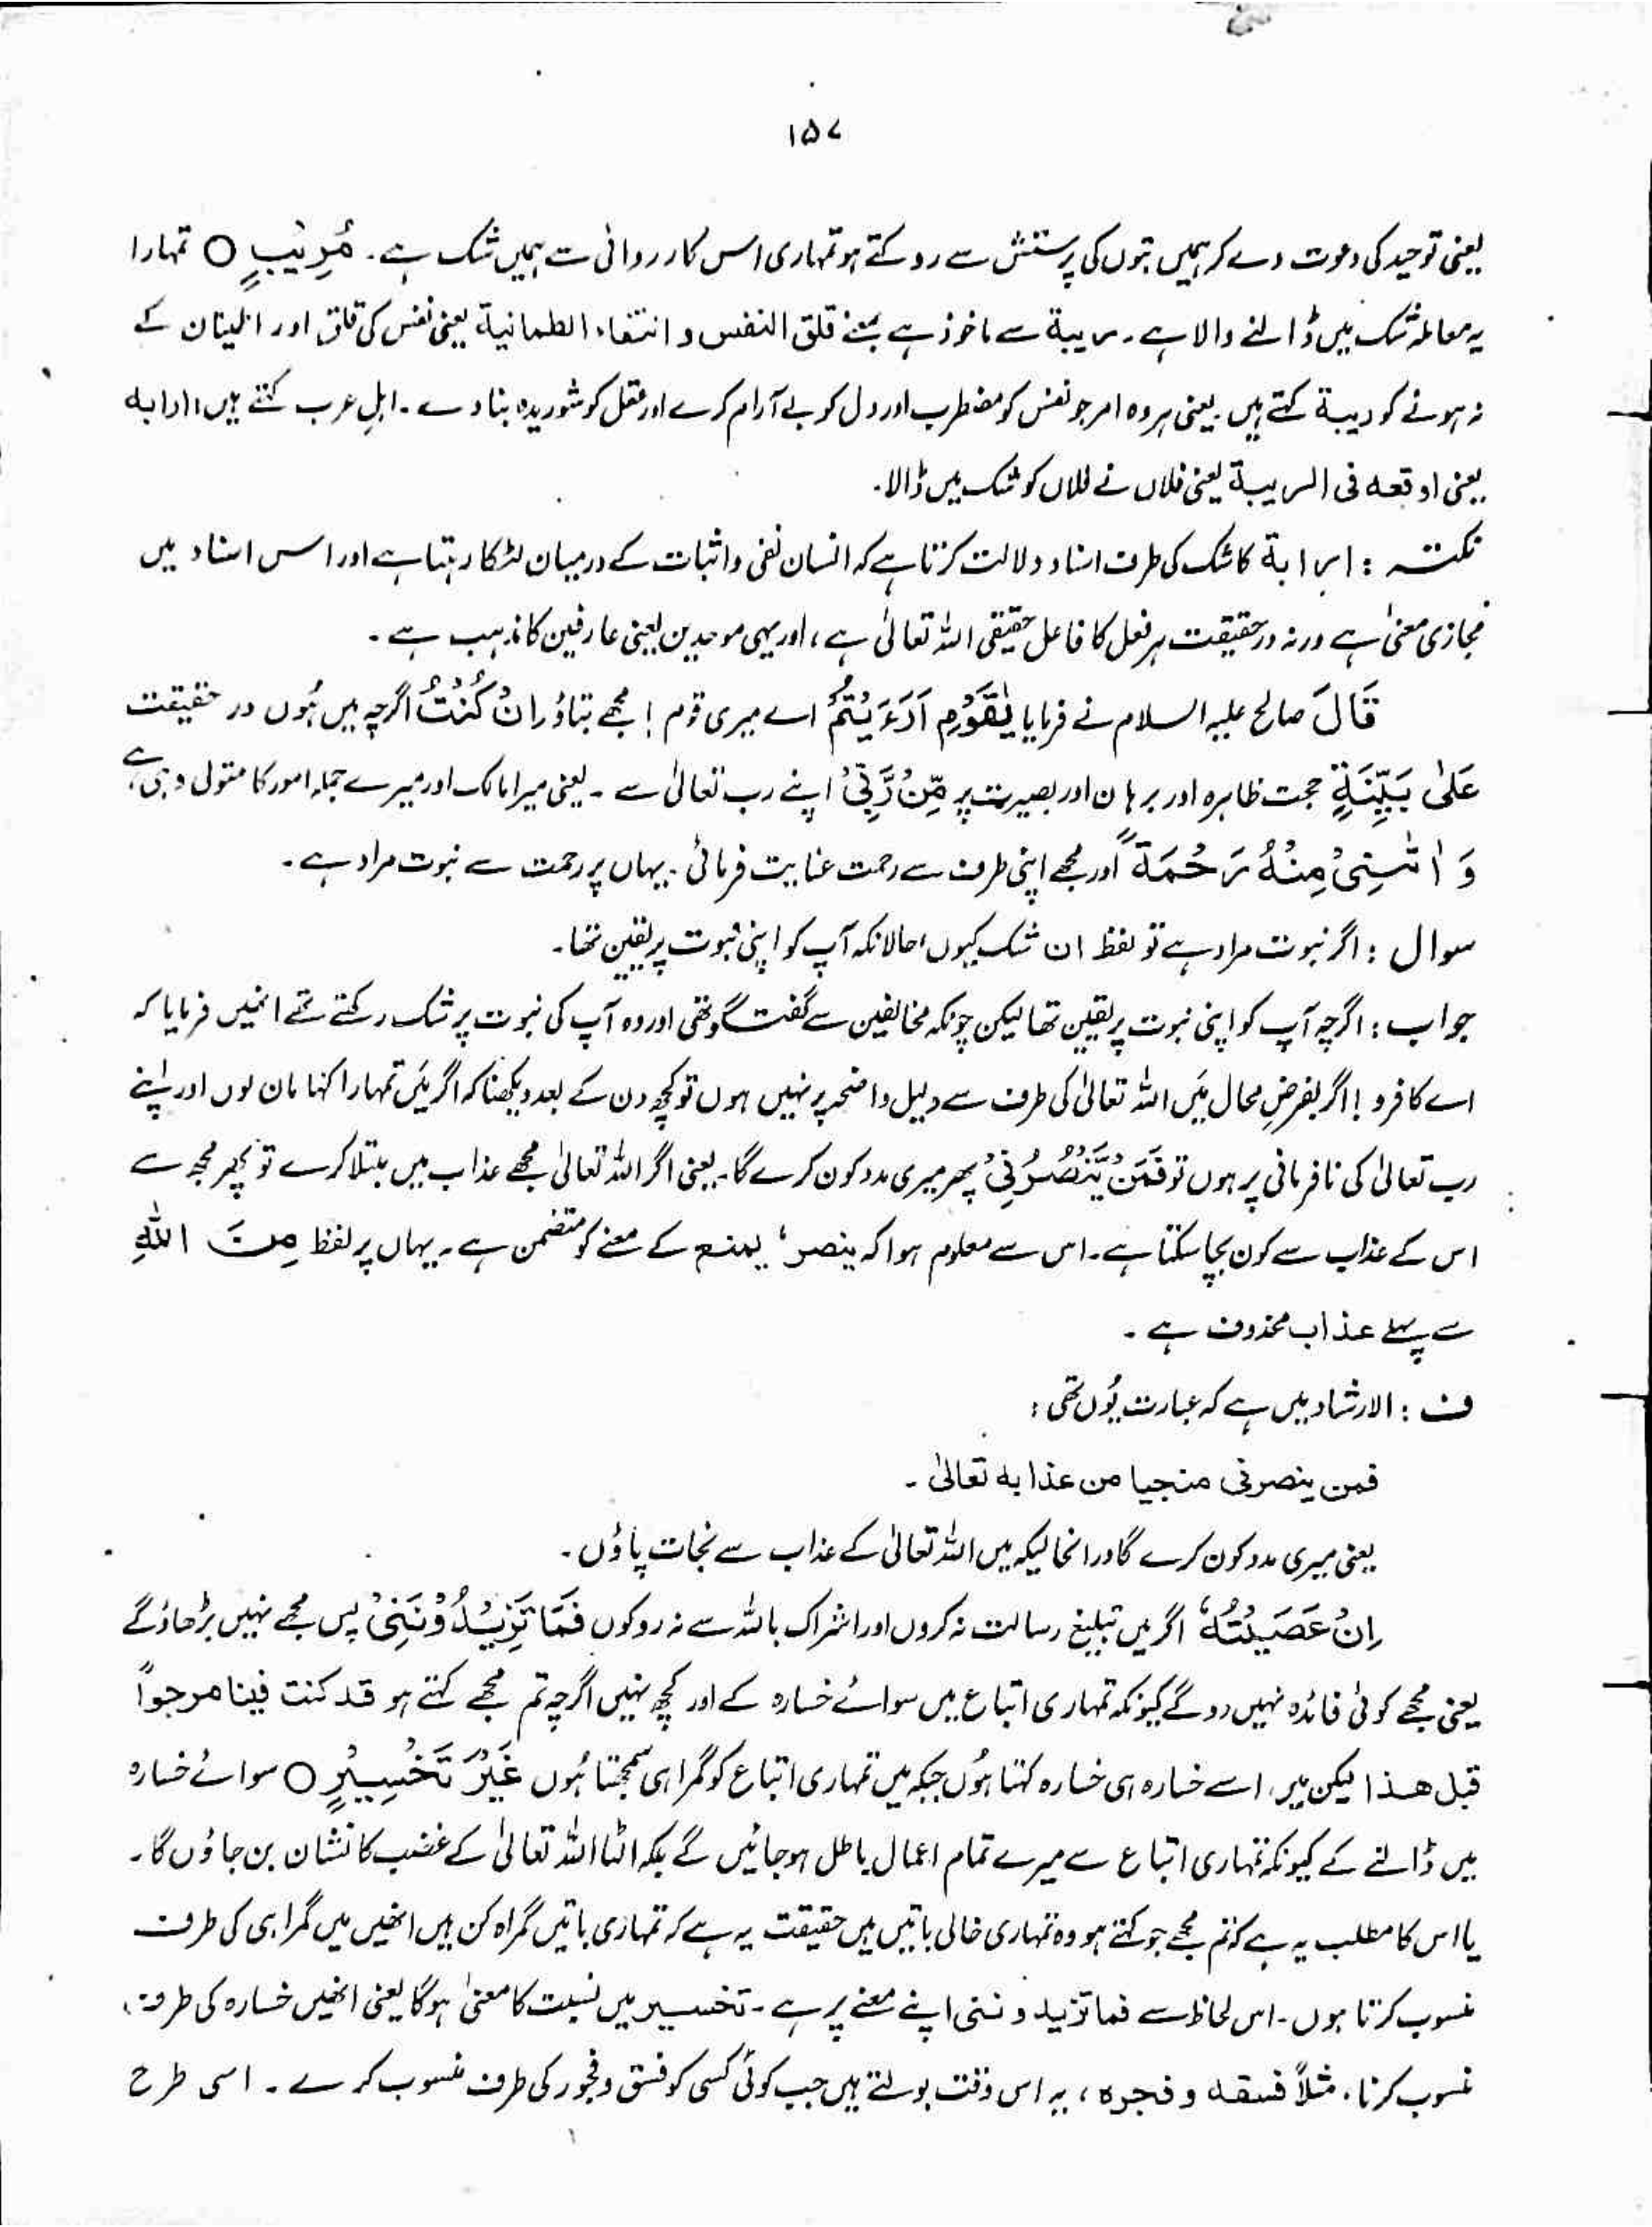 ۱۵۷
یعنی توحید کی دعوت دے کر ہمیں بتوں کی پرستش سے روکتے ہو تمہاری اس کارروائی سے ہمیں شک ہے۔ مُرِیْبٍ ○ تمہارا
یہ معاملہ شک میں ڈالنے والا ہے۔ ریبة سے ماخوذ ہے بمعنے قلق النفس و انتفاء الطمانیة یعنی نفس کی قلق اور اطمینان کے
نہ ہونے کو ریبة کہتے ہیں۔ یعنی ہر وہ امر جو نفس کو مضطرب اور دل کو بے آرام کرے اور عقل کو شوریدہ بنا دے۔ اہلِ عرب کہتے ہیں ارابہ
یعنی اوقعه فی الریبة یعنی فلاں نے فلاں کو شک میں ڈالا۔
نکتہ : ارابة کا شک کی طرف اسناد دلالت کرتا ہے کہ انسان نفی و اثبات کے درمیان لٹکا رہتا ہے اور اس اسناد میں
مجازی معنیٰ ہے ورنہ درحقیقت ہر فعل کا فاعل حقیقی اللہ تعالیٰ ہے، اور یہی موحدین یعنی عارفین کا مذہب ہے۔
قَالَ صالح علیہ السلام نے فرمایا یٰقَوْمِ اَرَءَیْتُمْ اے میری قوم ! مجھے بتاؤ اِنْ كُنْتُ اگرچہ میں ہُوں در حقیقت
عَلٰی بَیِّنَةٍ حجت ظاہرہ اور برہان اور بصیرت پر مِّنْ رَّبِّیْ اپنے رب تعالیٰ سے ۔ یعنی میرا مالک اور میرے جملہ امور کا متولی وہی ہے،
وَ اٰتٰىنِیْ مِنْهُ رَحْمَةً اور مجھے اپنی طرف سے رحمت عنایت فرمائی۔ یہاں پر رحمت سے نبوت مراد ہے۔
سوال : اگر نبوت مراد ہے تو لفظ ان شک کیوں، حالانکہ آپ کو اپنی نبوت پر یقین تھا۔
جواب : اگرچہ آپ کو اپنی نبوت پر یقین تھا لیکن چونکہ مخالفین سے گفتگو تھی اور وہ آپ کی نبوت پر شک رکھتے تھے انھیں فرمایا کہ
اے کافرو ! اگر بفرضِ محال میَں اللہ تعالیٰ کی طرف سے دلیل واضحہ پر نہیں ہوں تو کچھ دن کے بعد دیکھنا کہ اگر میَں تمہارا کہنا مان لوں اور اپنے
رب تعالیٰ کی نافرمانی پر ہوں تو فَمَنْ یَّنْصُرُنِیْ پھر میری مدد کون کرے گا۔ یعنی اگر اللہ تعالیٰ مجھے عذاب میں مبتلا کرے تو پھر مجھ سے
اس کے عذاب سے کون بچا سکتا ہے۔ اس سے معلوم ہوا کہ ینصر، یمنع کے معنے کو متضمن ہے۔ یہاں پر لفظ مِنَ اللّٰهِ
سے پہلے عذاب محذوف ہے ۔
ف : الارشاد میں ہے کہ عبارت یُوں تھی :
فمن ینصرنی منجیا من عذابه تعالیٰ ۔
یعنی میری مدد کون کرے گا درانحالیکہ میں اللہ تعالیٰ کے عذاب سے نجات پاؤں۔
اِنْ عَصَیْتُهٗ اگر میں تبلیغِ رسالت نہ کروں اور اشراک باللہ سے نہ روکوں فَمَا تَزِیْدُوْنَنِیْ پس مجھے نہیں بڑھاؤ گے
یعنی مجھے کوئی فائدہ نہیں دو گے کیونکہ تمہاری اتباع میں سوائے خسارہ کے اور کچھ نہیں اگرچہ تم مجھے کہتے ہو قد کنت فینا مرجواً
قبل هذا لیکن میں اسے خسارہ ہی خسارہ کہتا ہُوں جبکہ میں تمہاری اتباع کو گمراہی سمجھتا ہُوں غَیْرَ تَخْسِیْرٍ ○ سوائے خسارہ
میں ڈالنے کے کیونکہ تمہاری اتباع سے میرے تمام اعمال باطل ہو جائیں گے بلکہ الٹا اللہ تعالیٰ کے غضب کا نشان بن جاؤں گا۔
یا اس کا مطلب یہ ہے کہ تم مجھے جو کہتے ہو وہ تمہاری خالی باتیں ہیں حقیقت یہ ہے کہ تمہاری باتیں گمراہ کن ہیں انھیں میں گمراہی کی طرف
منسوب کرتا ہوں۔ اس لحاظ سے فما تزیدوننی اپنے معنے پر ہے ۔ تخسیر میں نسبت کا معنیٰ ہوگا یعنی انھیں خسارہ کی طرف
منسوب کرنا، مثلاً فسقه و فجره، یہ اس وقت بولتے ہیں جب کوئی کسی کو فسق و فجور کی طرف منسوب کرے ۔ اسی طرح